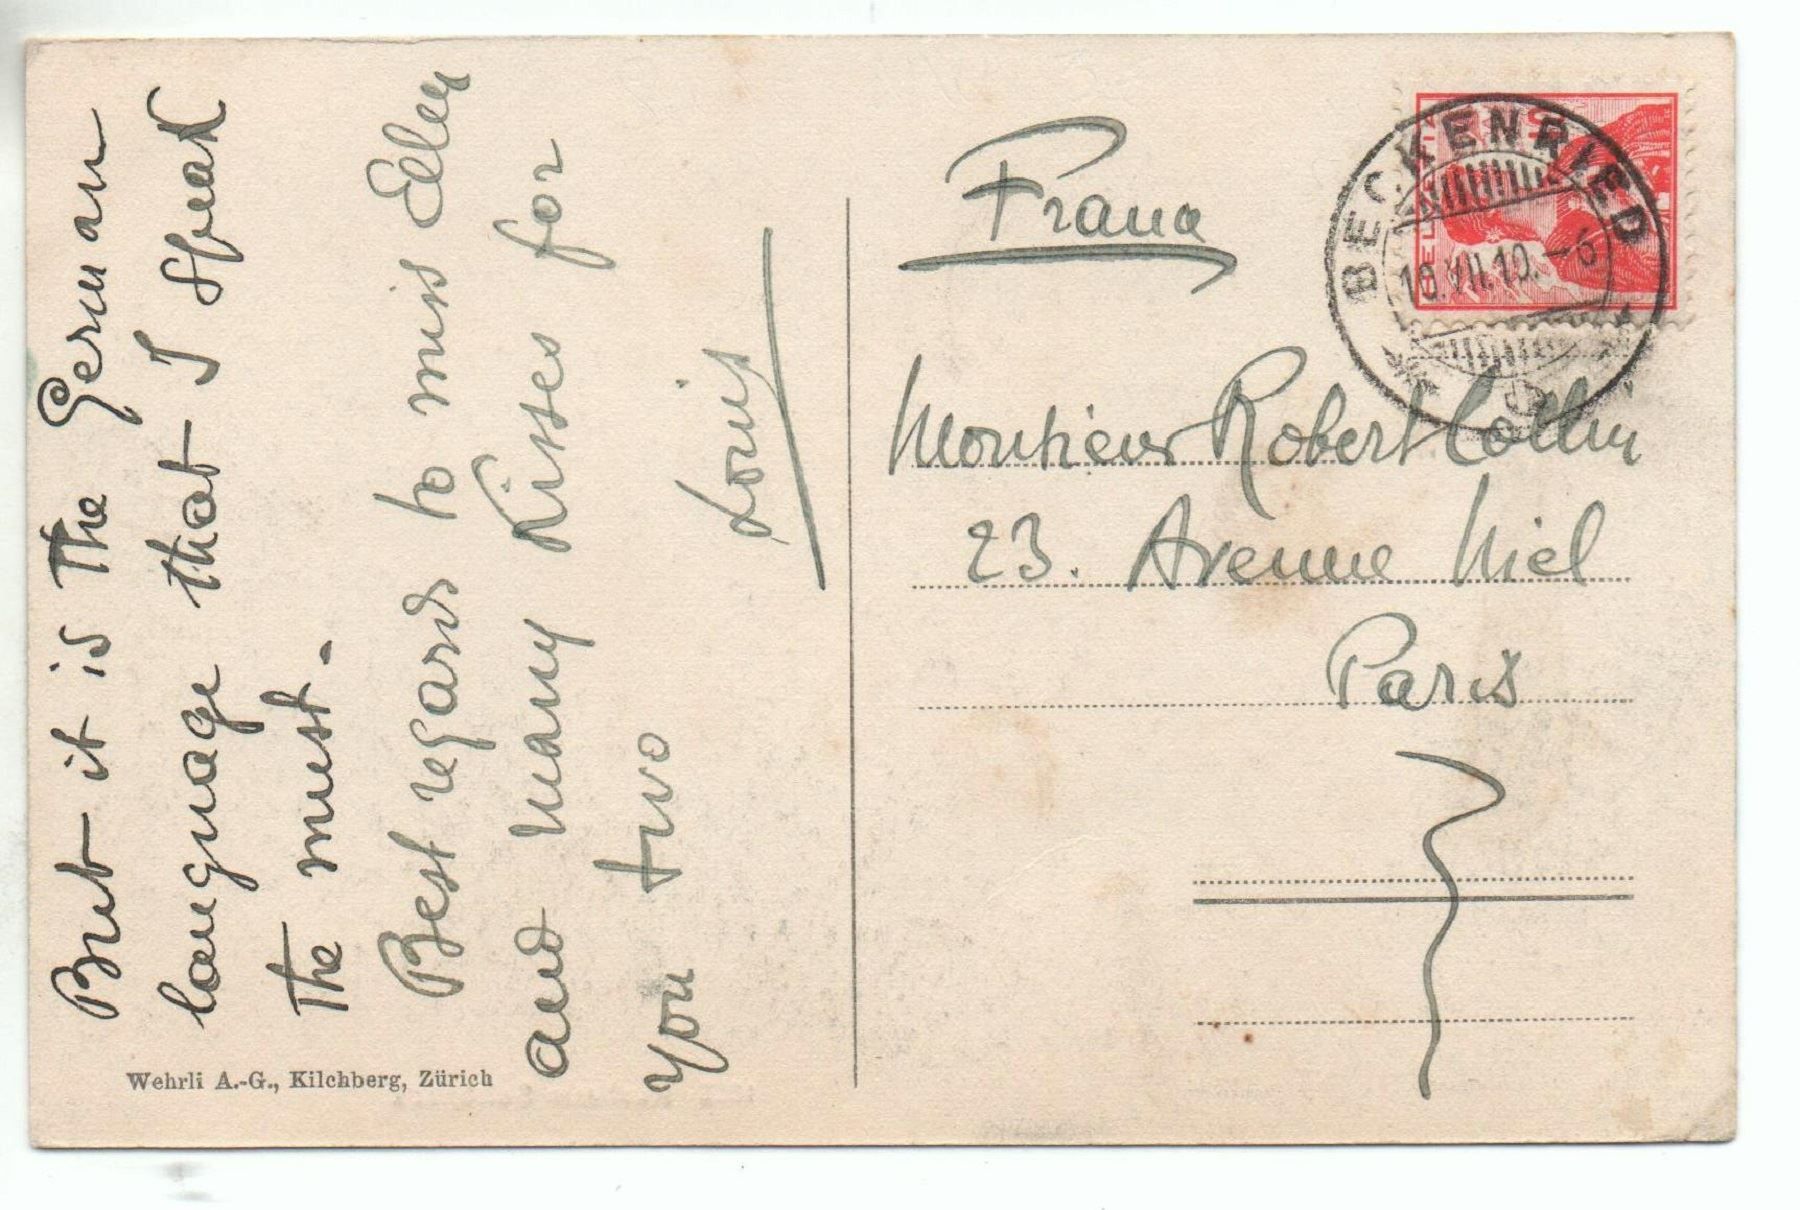 But it is the German
language that I speak
the must.
Best regards to miss Ellen
and many kisses for
you two
Louis
Wehrli A.-G., Kilchberg, Zürich
BECKENRIED
10.VII.10.-6
HELVETIA
10
France
Monsieur Robert
23. Avenue Niel
Paris